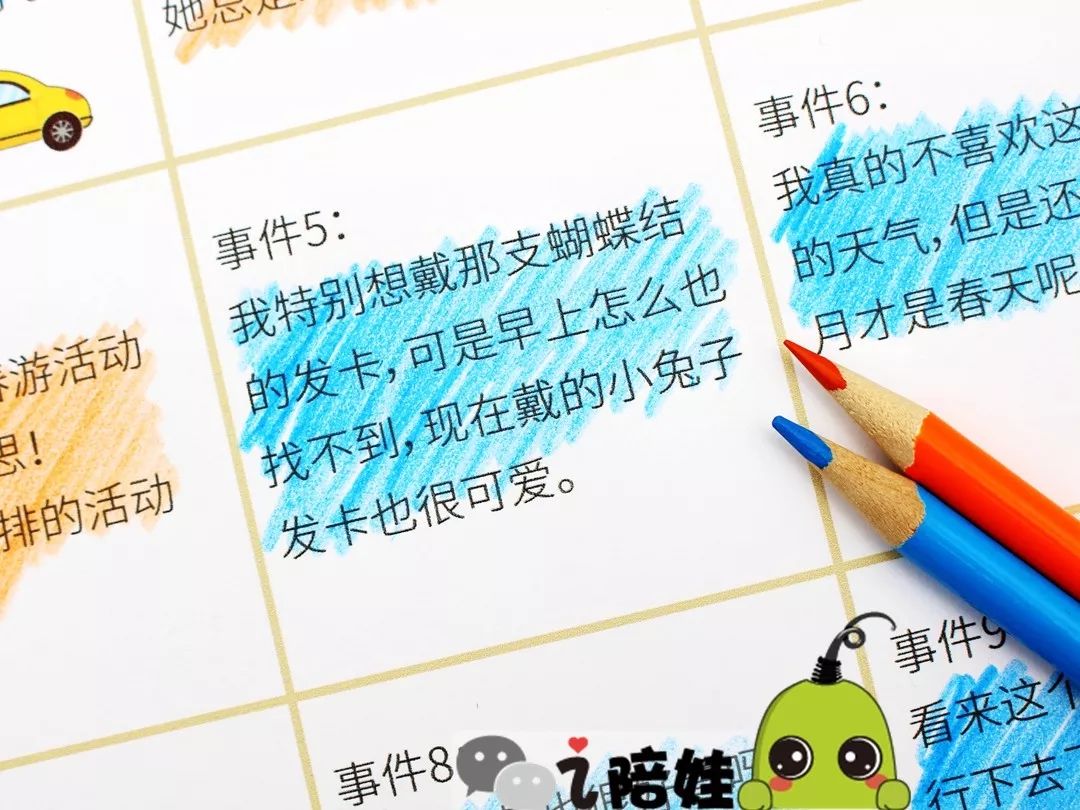 她总是
事件5：
我特别想戴那支蝴蝶结
的发卡，可是早上怎么也
找不到，现在戴的小兔子
发卡也很可爱。
事件6：
我真的不喜欢这
的天气，但是还
月才是春天呢
游活动
思！
排的活动
事件8
事件9
看来这个
行下去
i陪娃